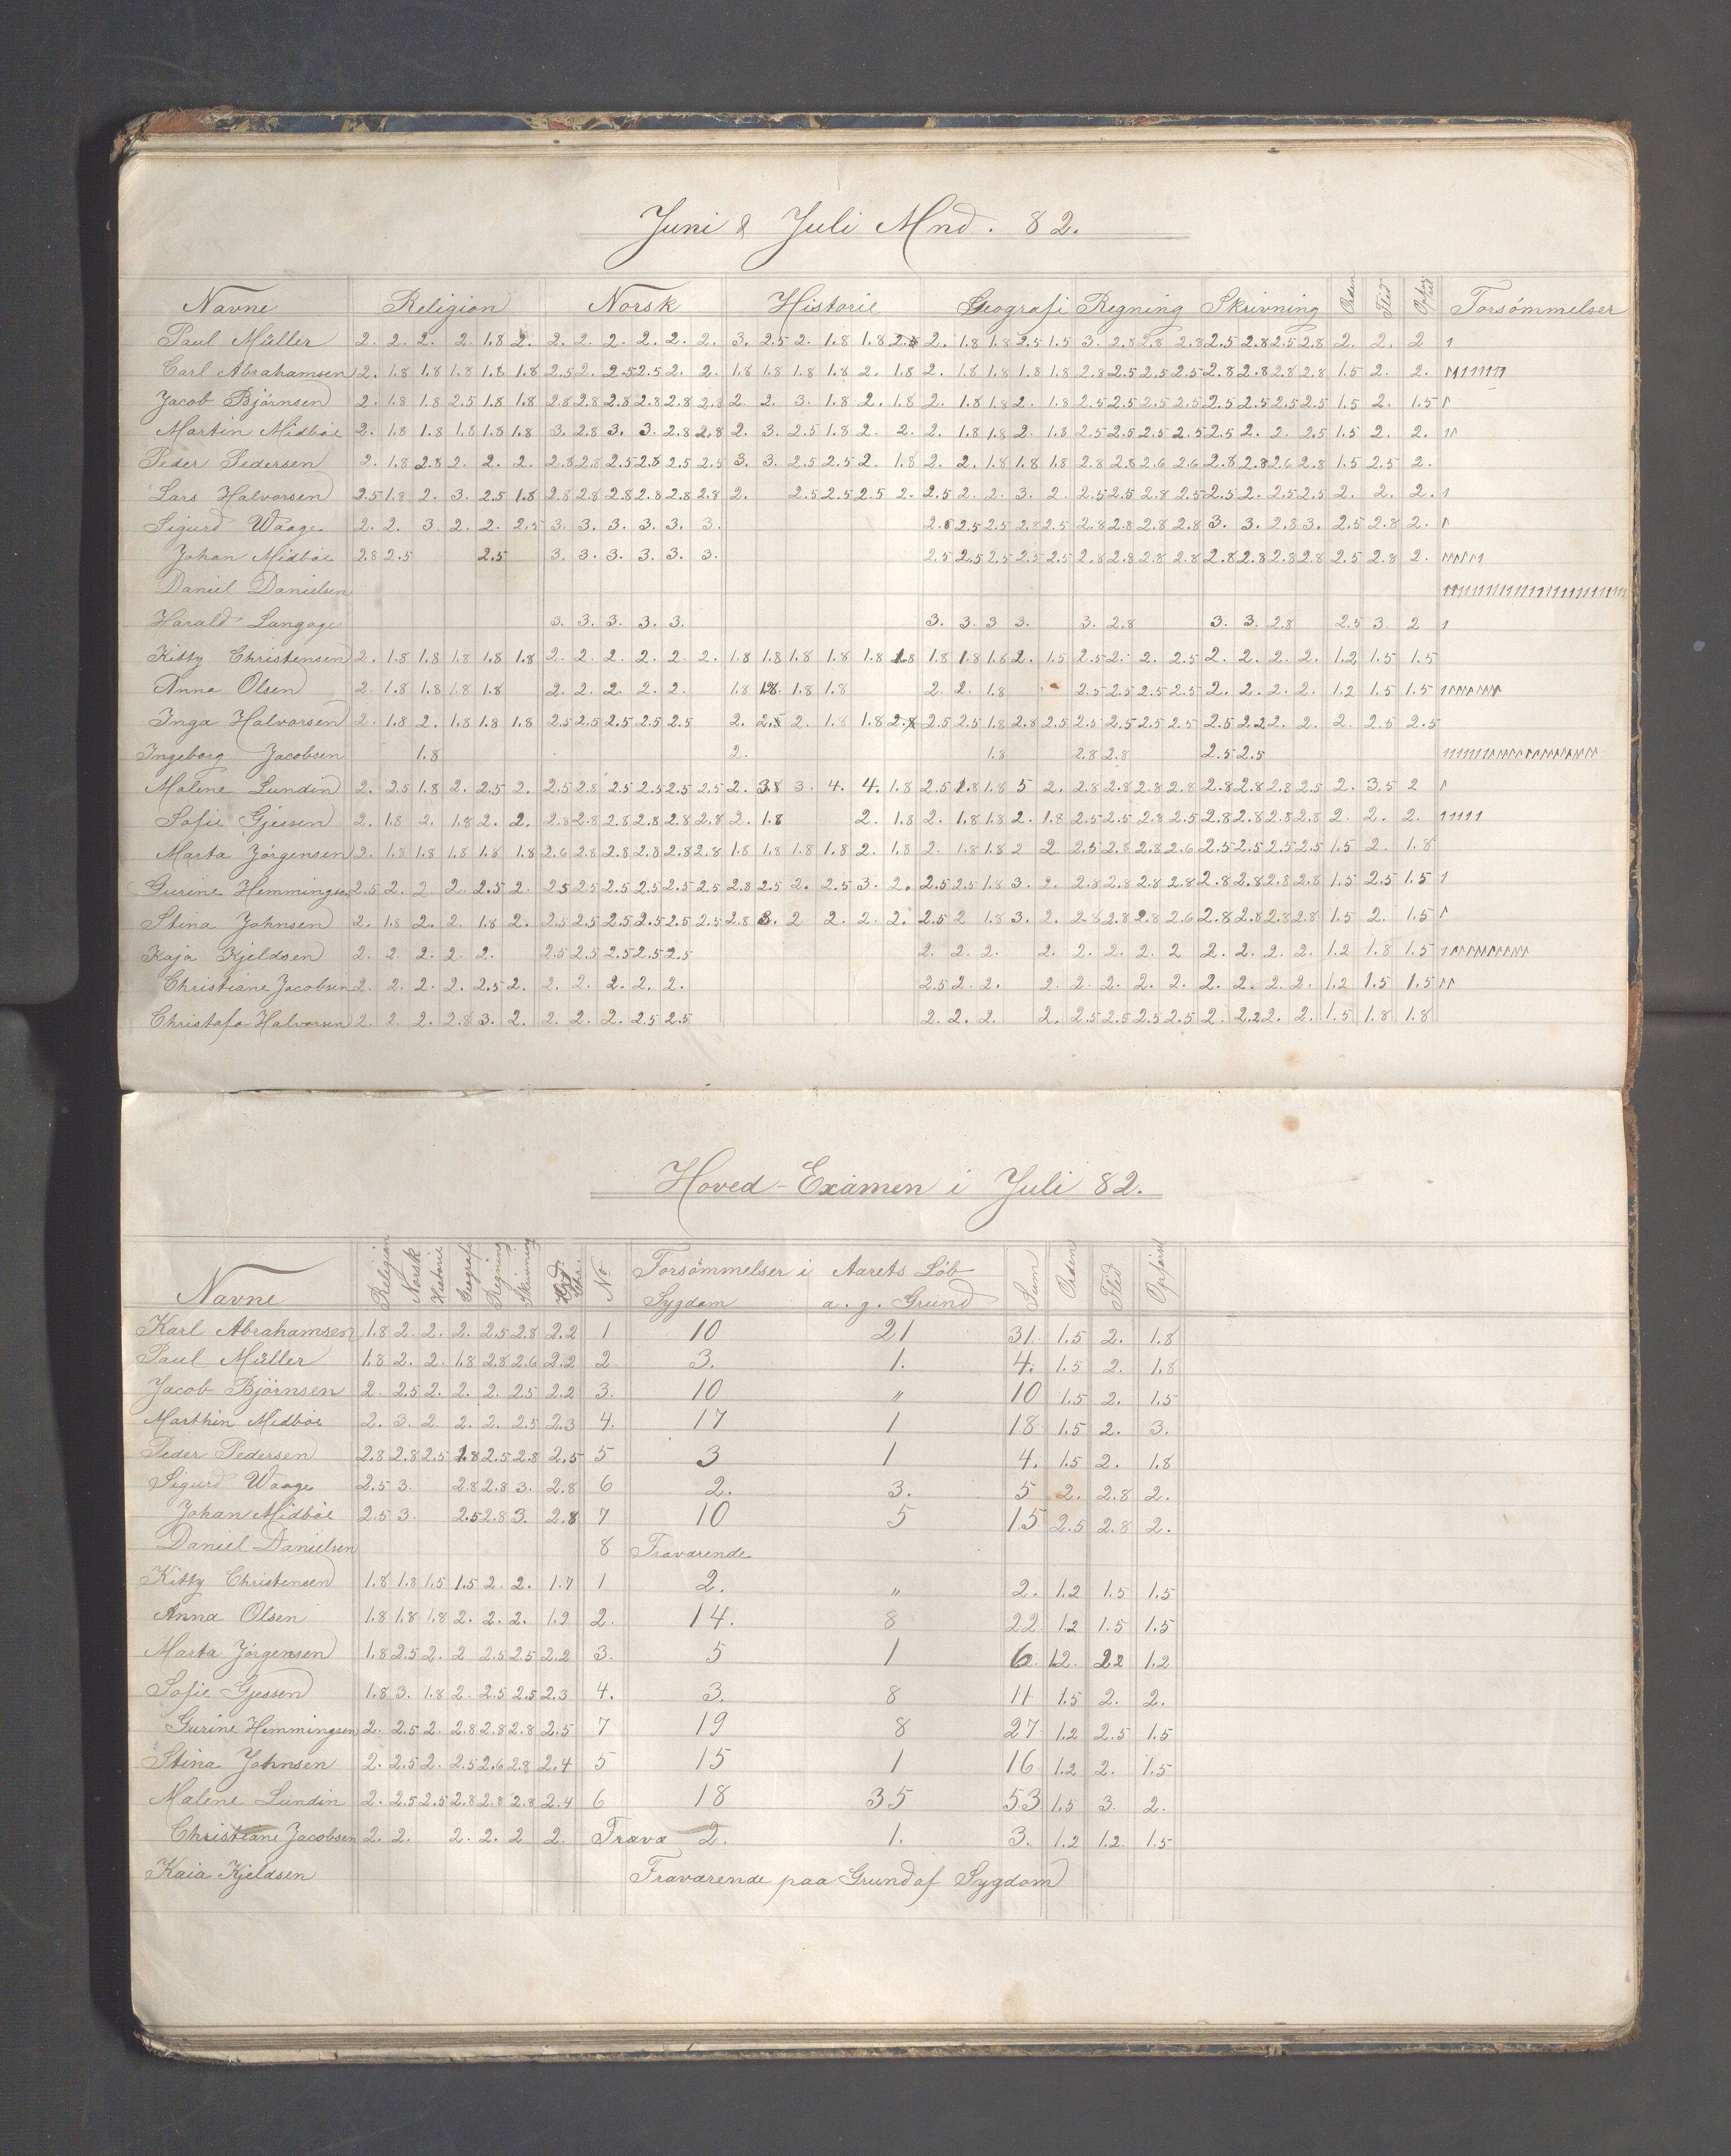 Juni & Juli Mnd. 82.
Navne Religion Norsk Historie Geografi Regning Skrivning Orden Flid Opførs Forsømmelser
Paul Müller 2. 2. 2. 2. 1.8 2. 2. 2. 2. 2. 2. 2. 3. 2.5 2. 1.8 1.8 2. 1.8 1.8 2.5 1.5 3. 2.8 2.8 2.8 2.5 2.8 2.5 2.8 2. 2. 2 1
Carl Abrahamsen 2. 1.8 1.8 1.8 1.8 1.8 2.5 2. 2.5 2.5 2. 2. 1.8 1.8 1.8 1.8 2. 1.8 2. 1.8 1.8 1.8 1.8 2.8 2.5 2.5 2.5 2.8 2.8 2.8 2.8 1.5 2. 2.
Jacob Bjørnsen 2. 1.8 1.8 2.5 1.8 1.8 2.8 2.8 2.8 2.8 2.8 2.8 2. 2. 3. 1.8 2. 1.8 2. 1.8 1.8 2. 1.8 2.5 2.5 2.5 2.5 2.5 2.5 2.5 2.5 1.5 2. 1.5 1
Martin Midbøe 2. 1.8 1.8 1.8 1.8 1.8 3. 2.8 3. 3. 2.8 2.8 2. 3. 2.5 1.8 2. 2. 2. 1.8 1.8 2. 1.8 2.5 2.5 2.5 2.5 2.5 2. 2. 2.5 1.5 2. 2. 11
Peder Pedersen 2. 1.8 2.8 2. 2. 2. 2.8 2.8 2.5 2.8 2.5 2.5 3. 3. 2.5 2.5 2. 1.8 2. 2. 1.8 1.8 1.8 2.8 2.8 2.6 2.6 2.8 2.8 2.6 2.8 1.5 2.5 2.
Lars Halvorsen 2.5 1.8 2. 3. 2.5 1.8 2.8 2.8 2.8 2.8 2.8 2.8 2. 2.5 2.5 2.5 2. 2.5 2. 2. 3. 2. 2.5 2.5 2.8 2.5 2.5 2. 2.5 2.5 2. 2. 2. 1
Sigurd Waage 2. 2. 3. 2. 2. 2.5 3. 3. 3. 3. 3. 3. 2.5 2.5 2.8 2.5 2.8 2.8 2.8 2.8 3. 3. 2.8 3. 2.5 2.8 2. 1
Johan Midbøe 2.8 2.5 2.5 3. 3. 3. 3. 3. 3. 2.5 2.5 2.5 2.5 2.5 2.8 2.8 2.8 2.8 2.8 2.8 2.8 2.8 2.5 2.8 2. 11111
Daniel Danielsen
Harald Langage 3. 3. 3. 3. 3. 3. 3. 3 3. 3. 2.8 3. 3. 2.8 2.5 3. 2 1
Kitty Christensen 2. 1.8 1.8 1.8 1.8 1.8 2. 2. 2. 2. 2. 2. 1.8 1.8 1.8 1.8 1.8 1.8 1.8 1.8 1.8 2. 1.5 2.5 2. 2. 2.5 2. 2. 2. 2. 1.2 1.5 1.5
Anna Olsen 2. 1.8 1.8 1.8 1.8 2. 2. 2. 2. 2. 1.8 1.8 1.8 1.8 2. 2. 1.8 2.5 2.5 2.5 2.5 2. 2. 2. 2. 1.2 1.5 1.5
Inga Halvorsen 2. 1.8 2. 1.8 1.8 1.8 2.5 2.5 2.5 2.5 2.5 2. 2.5 2. 1.8 1.8 2. 2.5 2.5 1.8 2.8 2.5 2.5 2.5 2.5 2.5 2.5 2.2 2. 2. 2. 2.5 2.5
Ingeborg Jacobsen 1.8 2. 1.8 2.8 2.8 2.5 2.5
Malene Lundin 2. 2.5 1.8 2. 2.5 2. 2.5 2.8 2.5 2.5 2.5 2.5 2. 3.8 3. 4. 4. 1.8 2.5 1.8 1.8 5 2. 2.8 2.8 2.8 2.8 2.8 2.8 2.8 2.5 2. 3.5 2 1
Sofie Gjessen 2. 1.8 2. 1.8 2. 2. 2.8 2.8 2.8 2.8 2.8 2.8 2. 1.8 2. 1.8 2. 1.8 1.8 2. 1.8 2.5 2.5 2.8 2.5 2.8 2.8 2.8 2.8 2. 2. 2. 11111
Marta Jørgensen 2. 1.8 1.8 1.8 1.8 1.8 2.6 2.8 2.8 2.8 2.8 2.8 1.8 1.8 1.8 1.8 2. 1.8 2. 1.8 1.8 2 2. 2.5 2.8 2.8 2.6 2.5 2.5 2.5 2.5 1.5 2. 1.8
Gurine Hemmingsen 2.5 2. 2 2. 2.5 2. 2.5 2.5 2.5 2.5 2.5 2.5 2.8 2.5 2. 2.5 3. 2. 2.5 2.5 1.8 3. 2. 2.8 2.8 2.8 2.8 2.8 2.8 2.8 2.8 1.5 2.5 1.5 1
Stina Johnsen 2. 1.8 2. 2. 1.8 2. 2.5 2.5 2.5 2.5 2.5 2.5 2.8 3. 2 2. 2. 2. 2.5 2 1.8 3. 2. 2.8 2.8 2.8 2.6 2.8 2.8 2.8 2.8 1.5 2. 1.5 1
Kaja Kjeldsen 2. 2. 2. 2. 2. 2.5 2.5 2.5 2.5 2.5 2. 2. 2. 2. 2. 2. 2. 2 2. 2. 2. 2. 1.2 1.8 1.5
Christiane Jacobsen 2. 2. 2. 2. 2.5 2. 2. 2. 2. 2. 2. 2.5 2. 2. 2. 2. 2. 2. 2. 2. 2. 2. 2. 1.2 1.5 1.5 11
Christofa Halvorsen 2. 2. 2. 2.8 3. 2. 2. 2. 2. 2.5 2.5 2. 2. 2. 2. 2.5 2.5 2.5 2.5 2. 2.2 2. 2. 1.5 1.8 1.8
Hoved-Examen i Juli 82.
Navne Religion Norsk Historie Geografi Regning Skrivning No Forsømmelser i Aarets Løb Sum Orden Flid Opførsel
Sygdom a. g. Grund
Karl Abrahamsen 1.8 2. 2. 2. 2.5 2.8 2.2 1 10 21 31. 1.5 2. 1.8
Paul Müller 1.8 2. 2. 1.8 2.8 2.6 2.2 2 3. 1. 4. 1.5 2. 1.8
Jacob Bjørnsen 2. 2.5 2. 2. 2. 2.5 2.2 3. 10 " 10 1.5 2. 1.5
Marthin Midbøe 2. 3. 2. 2. 2. 2.5 2.3 4. 17 1 18 1.5 2. 3.
Peder Pedersen 2.8 2.8 2.5 1.8 2.5 2.8 2.5 5 3 1 4. 1.5 2. 1.8
Sigurd Waage 2.5 3. 2.8 2.8 3. 2.8 6 2. 3. 5 2. 2.8 2.
Johan Midbøe 2.5 3. 2.5 2.8 3. 2.8 7 10 5 15 2.5 2.8 2.
Daniel Danielsen 8 Fraværende
Kitty Christensen 1.8 1.8 1.5 1.5 2. 2. 1.7 1 2. " 2. 1.2 1.5 1.5
Anna Olsen 1.8 1.8 1.8 2. 2. 2. 1.9 2. 14. 8 22 1.2 1.5 1.5
Marta Jørgensen 1.8 2.5 2. 2 2.5 2.5 2.2 3. 5 1 6 1.2. 2.2 1.2
Sofie Gjessen 1.8 3. 1.8 2. 2.5 2.5 2.3 4. 3. 8 11 1.5 2. 2.
Gurine Hemmingsen 2. 2.5 2. 2.8 2.8 2.8 2.5 7 19 8 27 1.2 2.5 1.5
Stina Johnsen 2. 2.5 2. 2.5 2.6 2.8 2.4 5 15 1 16 1.2 2. 1.5
Malene Lundin 2. 2.5 2.5 2.8 2.8 2.8 2.4 6 18 35 53 1.5 3. 2.
Christiane Jacobsen 2. 2. 2. 2. 2 2. Fravæ 2. 1. 3. 1.2 1.2. 1.5
Kaia Kjeldsen Fraværende paa Grund af Sygdom